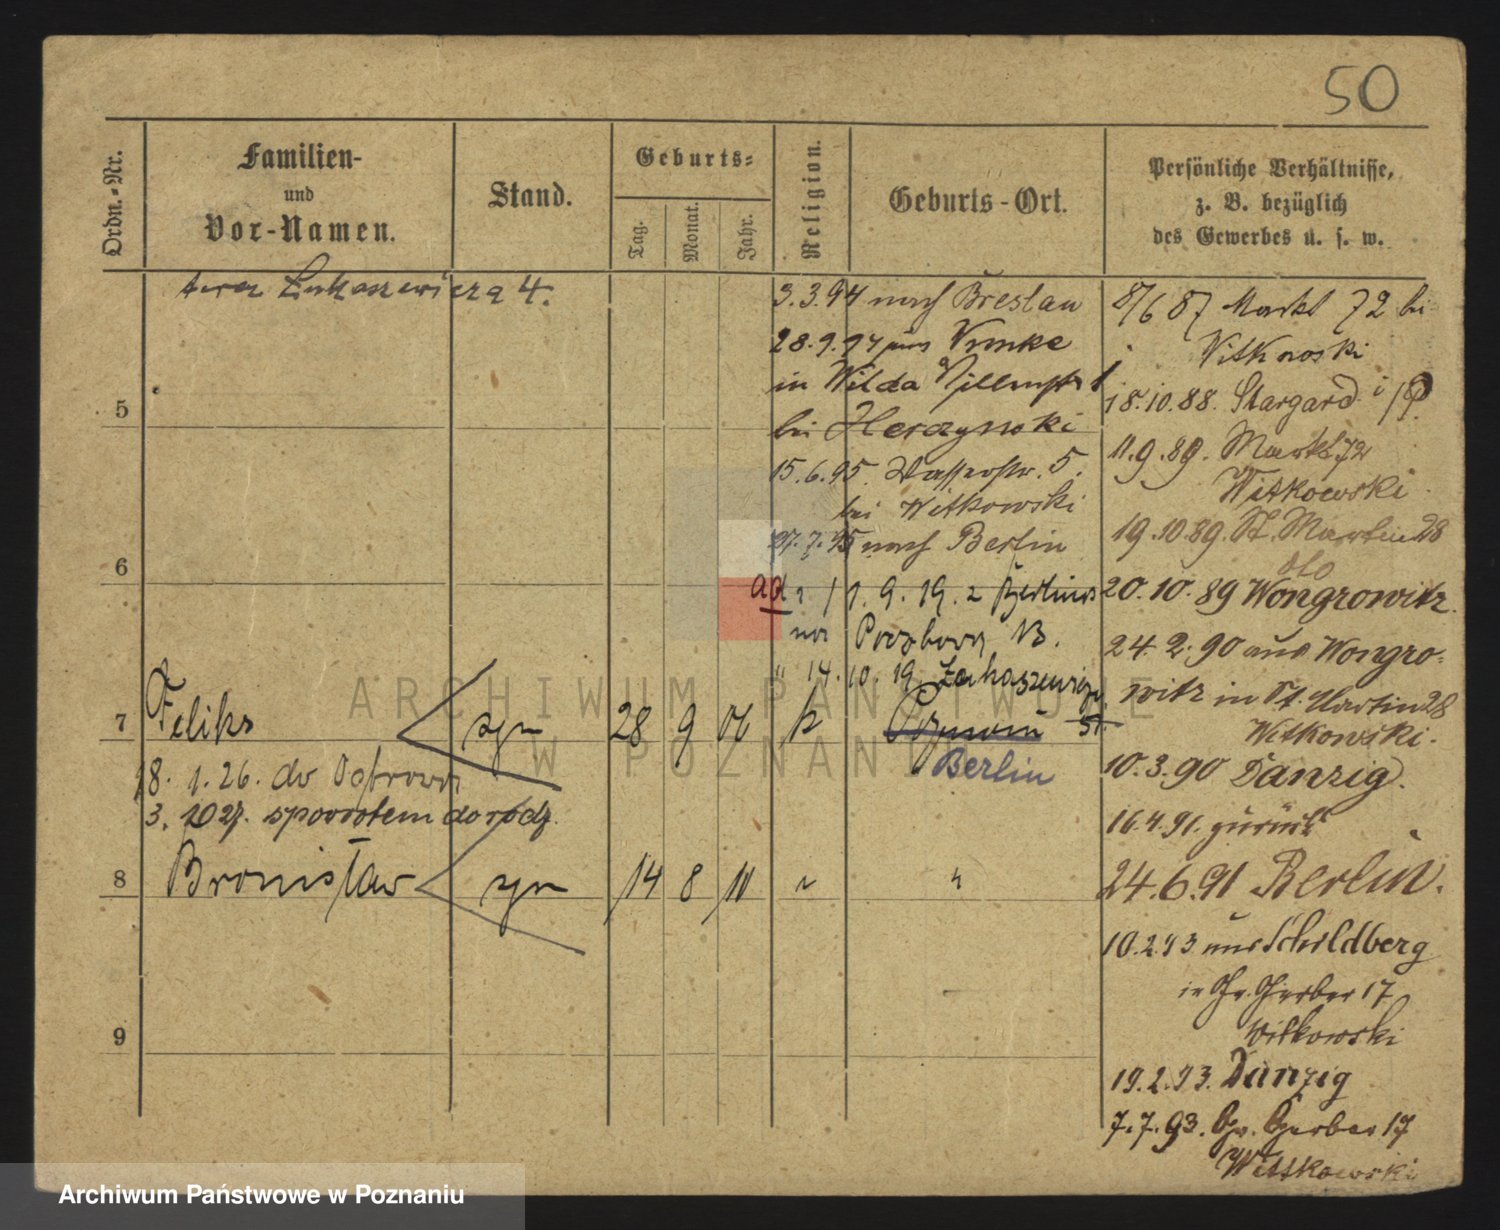 50
Ordn.-Nr.
Familien-
und
Vor-Namen.
Stand.
Geburts-
Tag.
Monat.
Jahr.
Religion.
Geburts-Ort.
Persönliche Verhältnisse,
z. B. bezüglich
des Gewerbes u. s. w.
teraz Łukaszewicza 4.
3.3.94 nach Breslau
28.9.94 aus
in Wilda
bei
15.6.95. Wasserstr. 5.
bei Witkowski
27.7.95 nach Berlin
ad 1. 9. 19. z Berlina
na B.
" 14. 10. 19
5
6
7
Feliks
syn
28
9
06
k
Poznań
Berlin
18. 1. 26. do Ostrowa
3. spowrotem do rodz.
8
Bronisław
syn
14
8
11
"
"
9
8/6 87 Markt 72 bei
Witkowski
18.10.88. Stargard i/P.
11.9.89. Markt 72
Witkowski
19.10.89. St. Martin 28
dto
20.10.89 Wongrowitz.
24.2.90 aus Wongro-
witz in St. Martin 28
Witkowski.
10.3.90 Danzig.
16.4.91. zurück
24.6.91 Berlin.
10.2.93 aus Schildberg
in Gr. Gerber 17
Witkowski
19.2.93. Danzig
7.7.93. Gr. Gerber 17
Wittkowski
ARCHIWUM PAŃSTWOWE
W POZNANIU
Archiwum Państwowe w Poznaniu